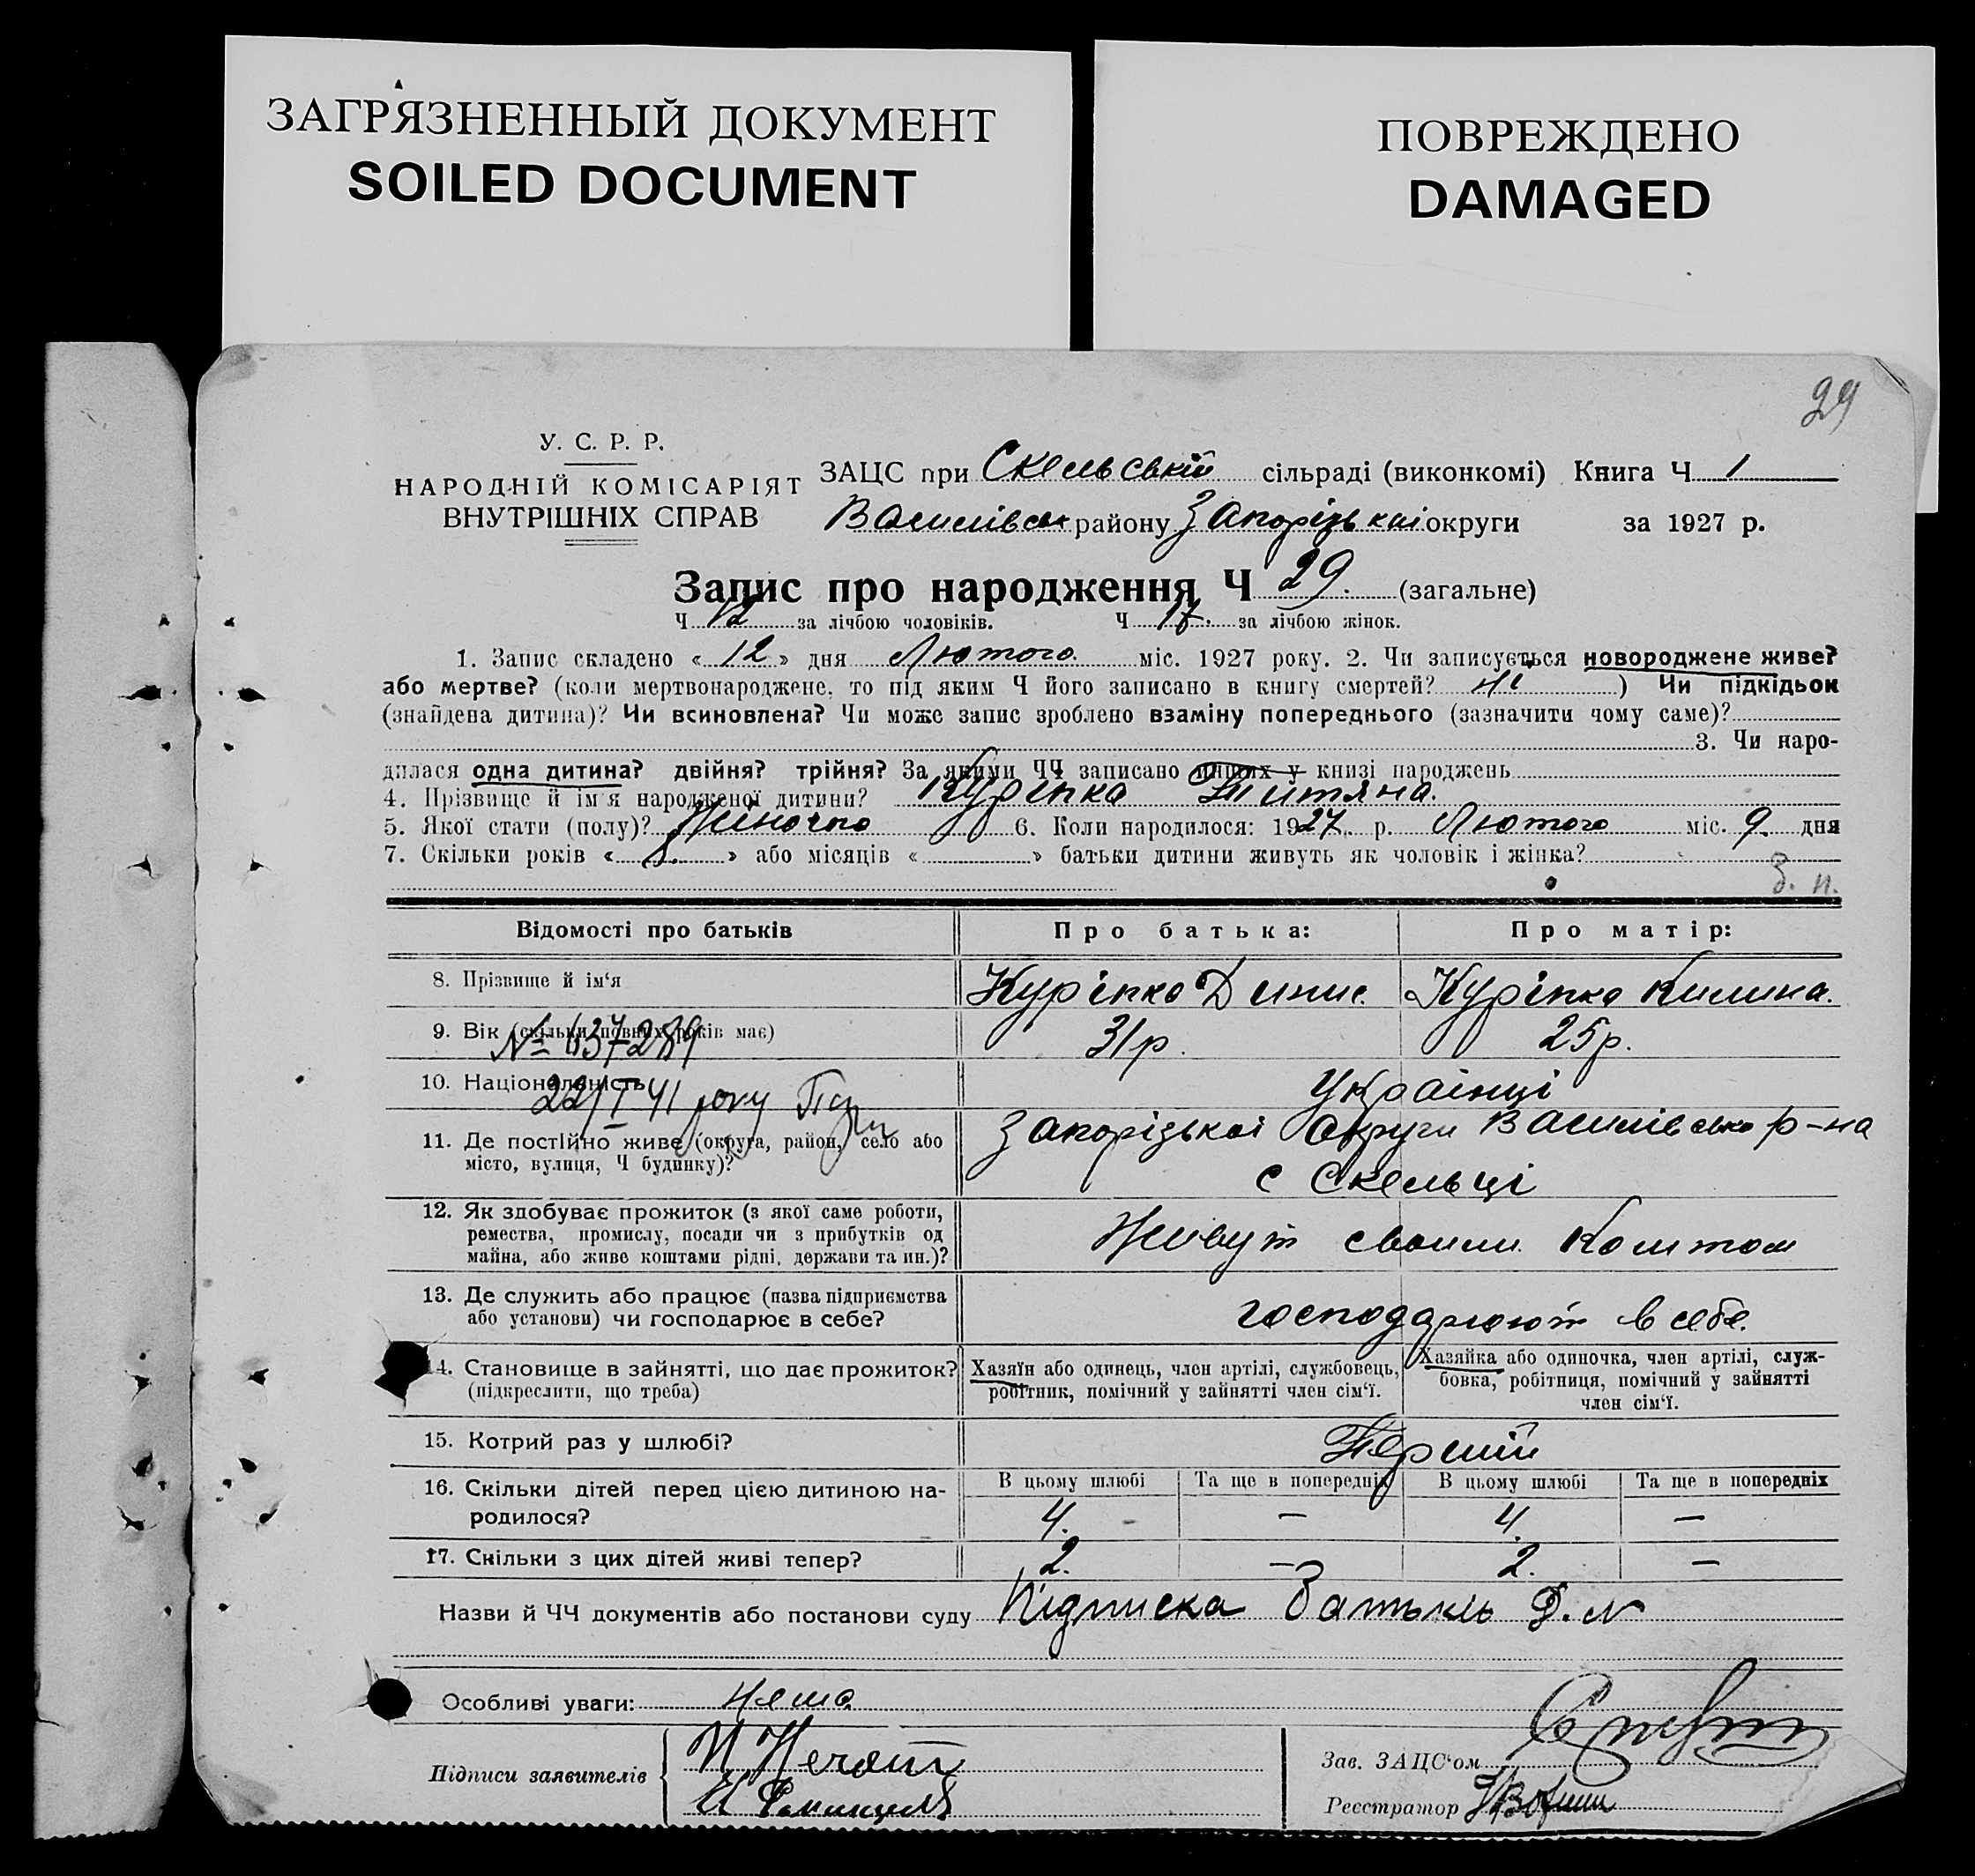 ЗАГРЯЗНЕННЫЙ ДОКУМЕНТ
SOILED DOCUMENT
ПОВРЕЖДЕНО
DAMAGED
29
У. С. Р. Р.
НАРОДНІЙ КОМІСАРІЯТ
ВНУТРІШНІХ СПРАВ
ЗАЦС при Скельській сільраді (виконкомі) Книга Ч 1
Василівськ району Запорізькоі округи за 1927 р.
Запис про народження Ч 29. (загальне)
Ч 12 за лічбою чоловіків. Ч 17. за лічбою жінок.
1. Запис складено « 12 » дня Лютого міс. 1927 року. 2. Чи записується новороджене живе?
або мертве? (коли мертвонароджене, то під яким Ч його записано в книгу смертей? ні ) Чи підкідьок
(знайдена дитина)? Чи всиновлена? Чи може запис зроблено взаміну попереднього (зазначити чому саме)?
3. Чи наро-
дилася одна дитина? двійня? трійня? За якими ЧЧ записано инших у книзі народжень
4. Прізвище й ім'я народженої дитини? Куріпка Титяна.
5. Якої стати (полу)? Жіночо 6. Коли народилося: 1927 р. Лютого міс. 9 дня
7. Скільки років « 8. » або місяців « » батьки дитини живуть як чоловік і жінка?
Відомості про батьків
Про батька:
Про матір:
8. Прізвище й ім'я
Куріпко Динис.
Куріпко Килина.
9. Вік (скільки повних років має)
31р.
25р.
10. Національність
Украінці
22/I 41 року
11. Де постійно живе (округа, район, село або
місто, вулиця, Ч будинку)?
Запорізькоі Округи Василівсько р-на
с Скельці
12. Як здобуває прожиток (з якої саме роботи,
ремества, промислу, посади чи з прибутків од
майна, або живе коштами рідні, держави та ин.)?
Живут своим Коштом
13. Де служить або працює (назва підприємства
або установи) чи господарює в себе?
господарюют в себе.
14. Становище в зайнятті, що дає прожиток?
(підкреслити, що треба)
Хазяїн або одинець, член артілі, службовець,
робітник, помічний у зайнятті член сім'ї.
Хазяйка або одиночка, член артілі, служ-
бовка, робітниця, помічний у зайнятті
член сім'ї.
15. Котрий раз у шлюбі?
Перший
16. Скільки дітей перед цією дитиною на-
родилося?
В цьому шлюбі
Та ще в попередніх
В цьому шлюбі
Та ще в попередніх
4. — 4. —
17. Скільки з цих дітей живі тепер?
2. — 2. —
Назви й ЧЧ документів або постанови суду Підписка Батьків
Особливі уваги: нема
Підписи заявителів
Зав. ЗАЦС'ом
Реєстратор